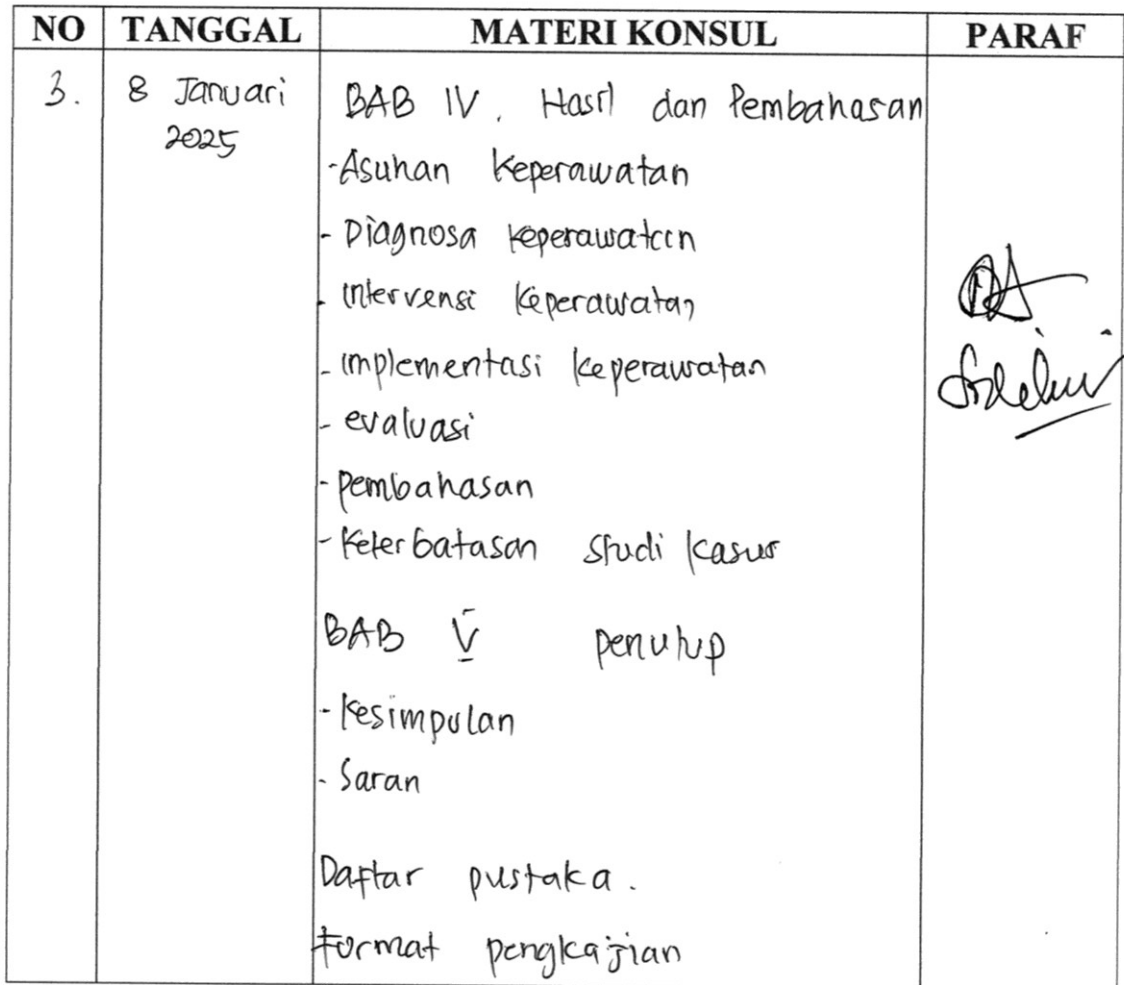 NO TANGGAL MATERI KONSUL PARAF
3. 8 Januari BAB IV. Hasil dan Pembahasan
2025
- Asuhan Keperawatan
- Diagnosa keperawatan
- intervensi keperawatan
- implementasi keperawatan
- evaluasi
- pembahasan
- Keterbatasan studi kasus
BAB V penutup
- Kesimpulan
- Saran
Daftar pustaka.
Format pengkajian